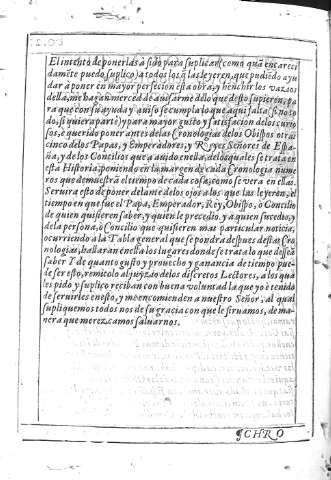 El intento de ponerlas à sido para suplicar (como quã encareci
damẽte puedo suplico) a todos los q̃ las leyeren, que pudiẽdo ayu
dar à poner en mayor perfecion esta obra, y henchir los vazios
della, me hagan merced de auisarme dlo que desto supieren, pa
ra que con su ayuda y auiso se cumpla lo que aqui falta (si no to
do, si quiera parte) y para mayor gusto y satisfacion delos curio
sos, è querido poner antes delas Cronologias delos Obispos otras
cinco delos Papas, y Emperadores, y Reyes Señores de Espa
ña, y delos Concilios que a auido en ella, delos quales se trata en
esta Historia, poniendo en la margen de cada Cronologia nume
ros que demuestrã el tiempo de cada cosa, como se vera en ellas.
Seruira esto de poner delante delos ojos a los que las leyeren, el
tiempo en que fue el Papa, Emperador, Rey, Obispo, ò Concilio
de quien quisieren saber, y quien le precedio, y a quien sucedio, y
dela persona, ò Concilio que quisieren mas particular noticia,
ocurriendo a la Tabla general que se pondra despues destas Cro
nologias, hallaran en ella los lugares donde se trata lo que dessẽa
saber Y de quanto gusto y prouecho y ganancia de tiempo pue-
de ser esto, remitolo al juyzio delos discretos Lectores, a los quà
les pido y suplico reciban con buena voluntad la que yo è tenido
de seruirles en esto, y me encomienden a nuestro Señor, al qual
supliquemos todos nos de su gracia con que le siruamos, de ma-
nera que merezcamos saluarnos.
¶CHRO